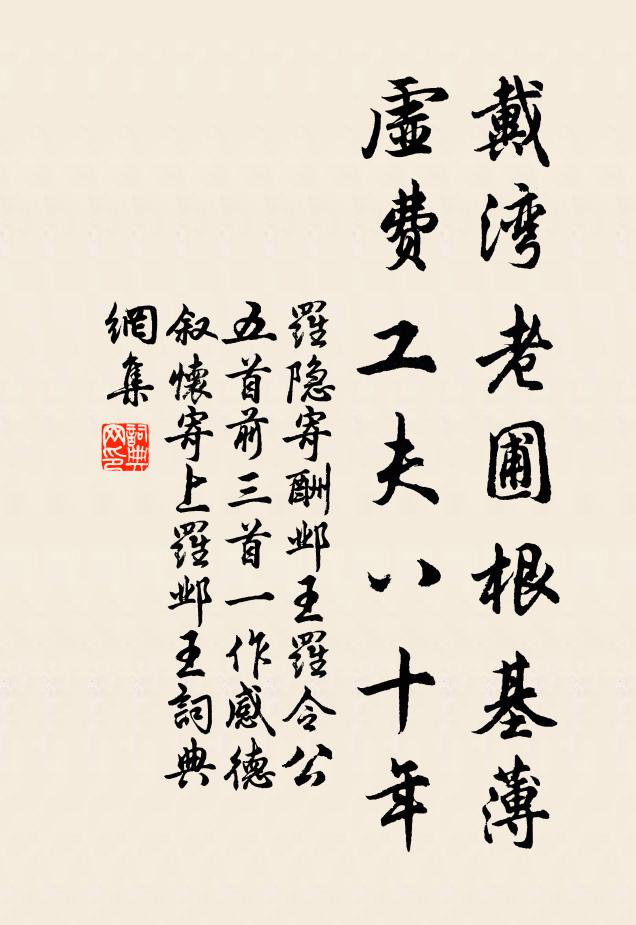 戴湾老圃根基薄
虚费工夫八十年
羅隐寄酬邺王羅令公
五首前三首一作感德
叙懷寄上羅邺王詞典
網集
詞典
网印